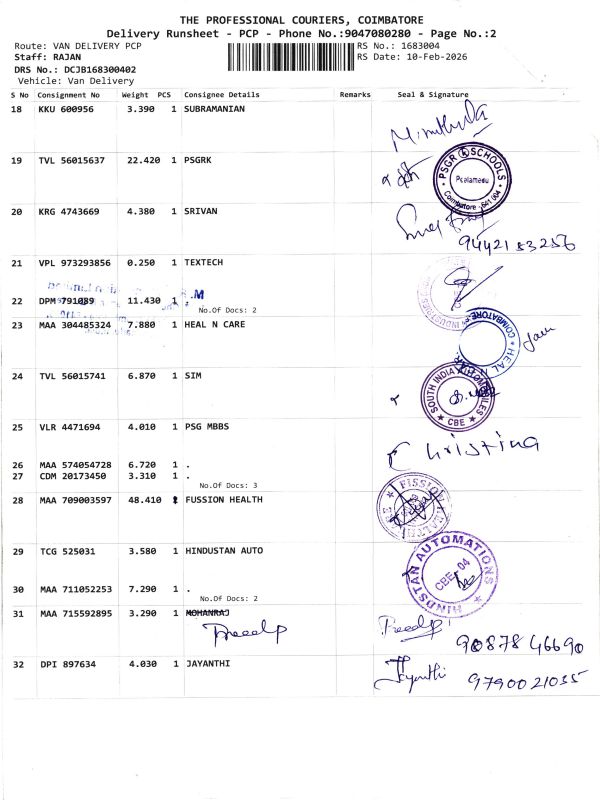 THE PROFESSIONAL COURIERS, COIMBATORE
Delivery Runsheet - PCP - Phone No.:9047080280 - Page No.:2
Route: VAN DELIVERY PCP RS No.: 1683004
Staff: RAJAN RS Date: 10-Feb-2026
DRS No.: DCJB168300402
Vehicle: Van Delivery
S No Consignment No Weight PCS Consignee Details Remarks Seal & Signature
18 KKU 600956 3.390 1 SUBRAMANIAN
Mrinthula
19 TVL 56015637 22.420 1 PSGRK
PSGR SCHOOLS
Peelamedu
Coimbatore - 641 004
20 KRG 4743669 4.380 1 SRIVAN
9442153256
21 VPL 973293856 0.250 1 TEXTECH
INDUSTRIES
22 DPM 791089 11.430 1 .M
No.Of Docs: 2
23 MAA 304485324 7.880 1 HEAL N CARE
HEAL N COIMBATORE
24 TVL 56015741 6.870 1 SIM
SOUTH INDIA AUTOMOBILES
CBE
25 VLR 4471694 4.010 1 PSG MBBS
Christina
26 MAA 574054728 6.720 1 .
27 CDM 20173450 3.310 1 .
No.Of Docs: 3
28 MAA 709003597 48.410 1 FUSSION HEALTH
FISSION HEALTH
29 TCG 525031 3.580 1 HINDUSTAN AUTO
HINDUSTAN AUTOMATIONS
CBE-04
30 MAA 711052253 7.290 1 .
No.Of Docs: 2
31 MAA 715592895 3.290 1 MOHANRAJ
Preedp Preedp
9087846690
32 DPI 897634 4.030 1 JAYANTHI
Jayanthi 9790021035